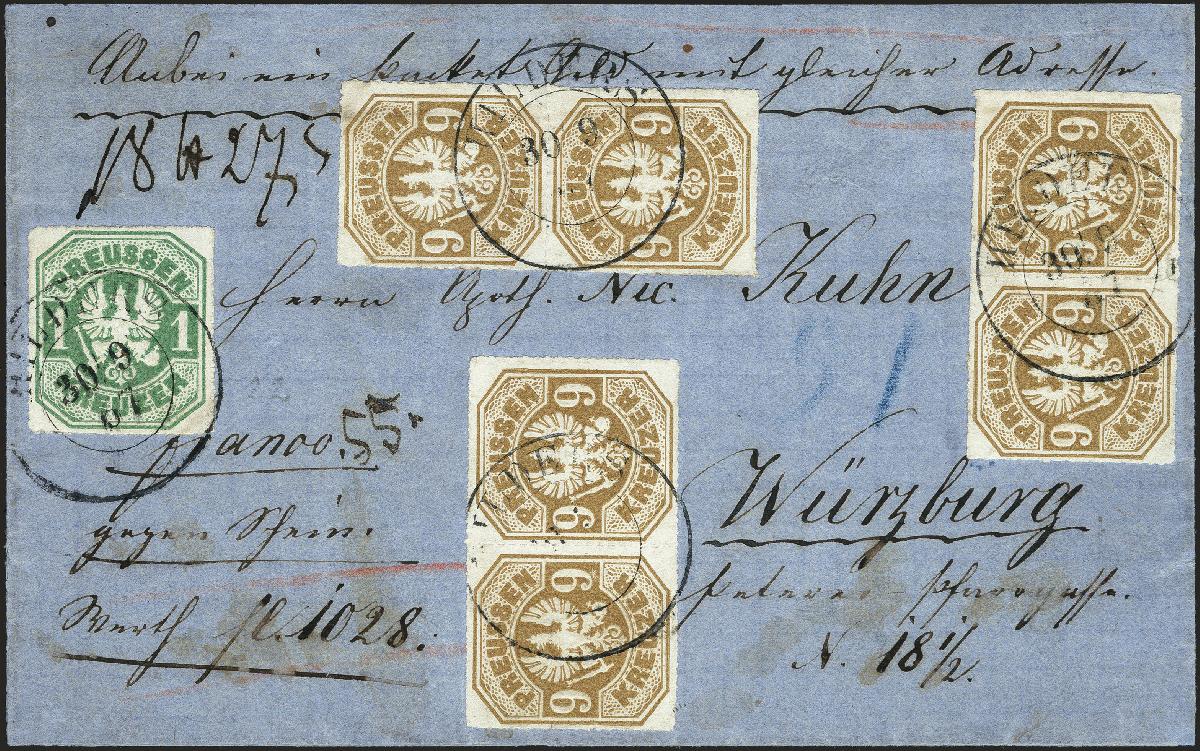 Anbei ein Packet Geld mit gleicher Adresse.
18 27
PREUSSEN 9 KREUZER 9
PREUSSEN 9 KREUZER 9
30 9
PREUSSEN 9 KREUZER 9
PREUSSEN 9 KREUZER 9
30 9
67
PREUSSEN 1 1 KREUZER
30 9
67
Herrn Apoth. Nic. Kuhn
91
franco. 55.
PREUSSEN 9 KREUZER 9
PREUSSEN 9 KREUZER 9
Würzburg
gegen Schein.
Peterer-Pfarrgasse.
Werth fl. 1028.
N. 18 1/2.